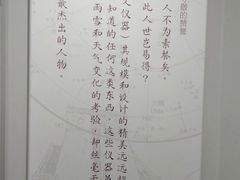 人不为素餐矣
此人世岂易得？
文仪器）其规模和设计的精美远远超
知道的任何这类东西，这些仪器
雨雪和天气变化的考验，却丝毫无
最杰出的人物。